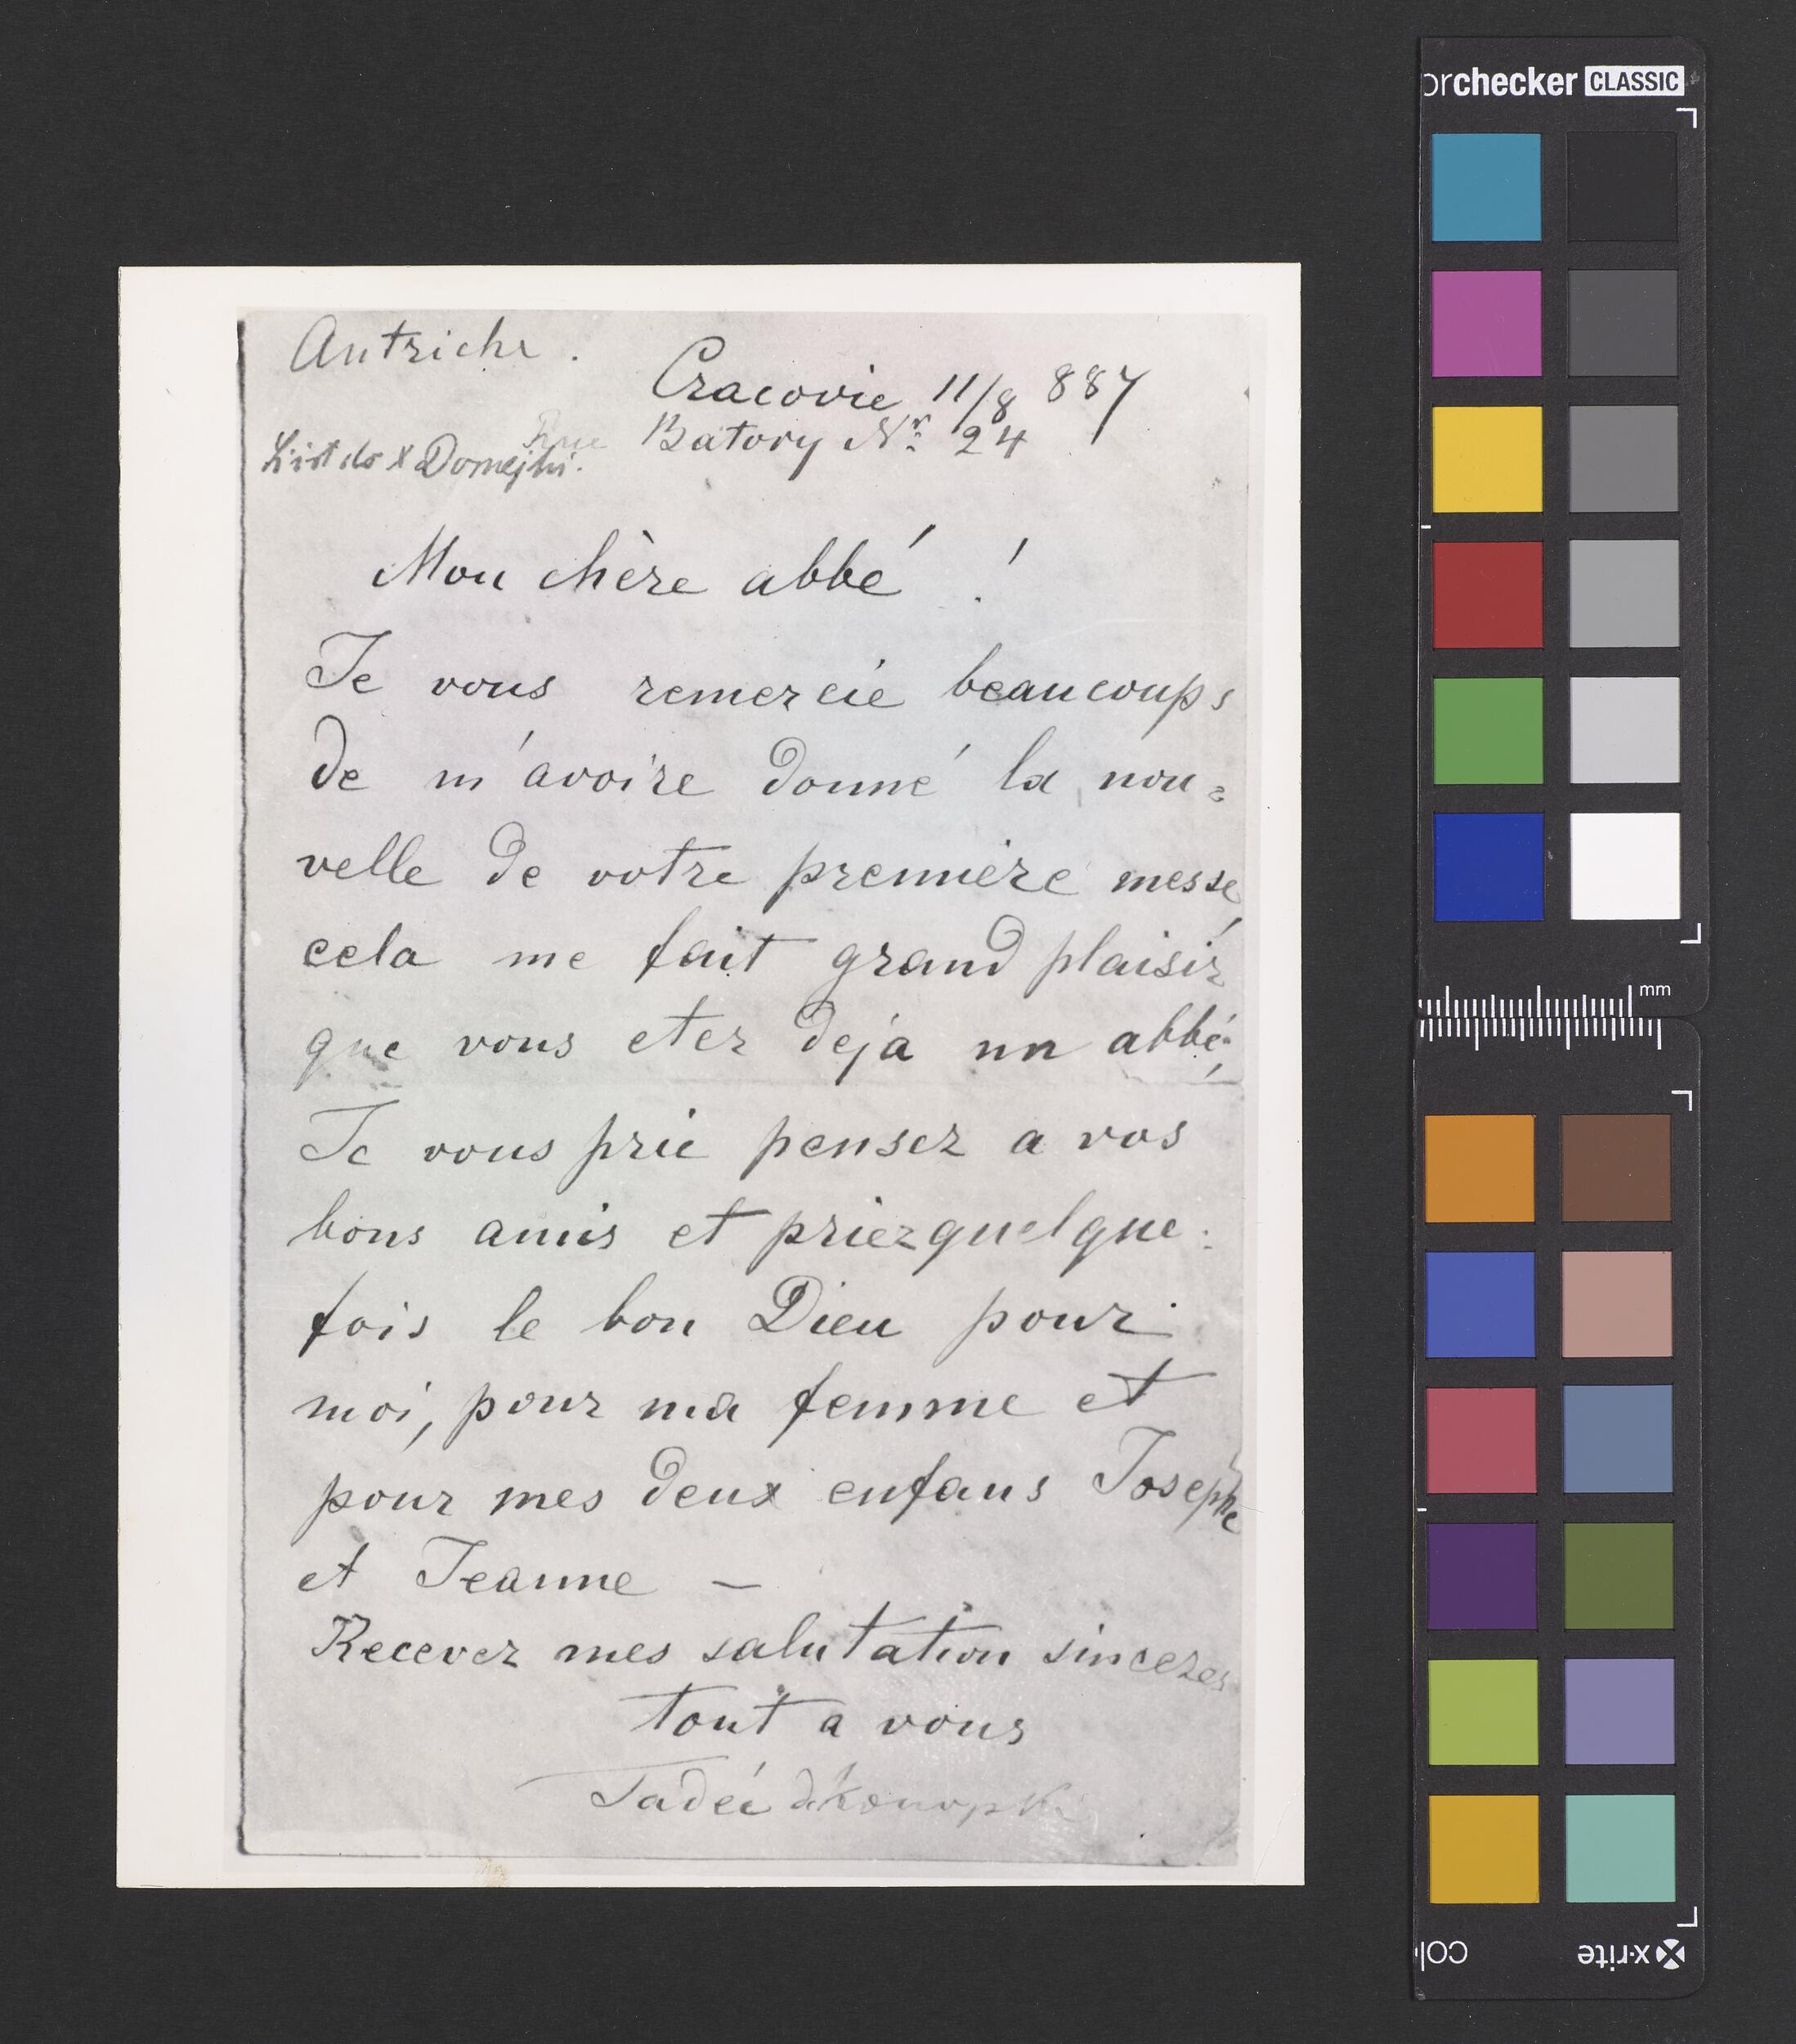 Autriche.
Cracovie 11/8 887
Rue Batory Nr 24
List do X Domejki.
Mon chère abbé !
Je vous remercie beaucoups
de m'avoire donné la nou=
velle de votre première messe
cela me fait grand plaisir
que vous etez déja un abbé;
Je vous prie pensez a vos
bons amis et priez quelque:
fois le bon Dieu pour
moi, pour ma femme et
pour mes deux enfans Josephe
et Jeanne —
Recever mes salutation sinceres
tout a vous
Tadeé d'Konopki
orchecker CLASSIC
mm
x-rite
colo